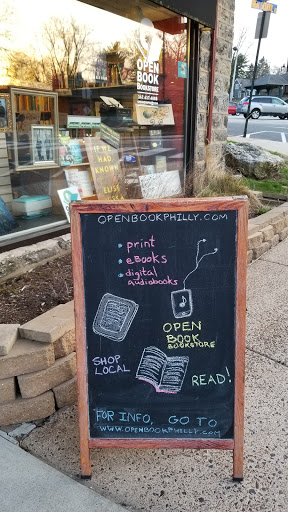 OPEN
BOOK
BOOKSTORE
IF WE
HAD
KNOWN
ELISE
OPENBOOKPHILLY.COM
• print
• eBooks
• digital
audiobooks
OPEN
BOOK
BOOKSTORE
SHOP
LOCAL
READ!
FOR INFO, GO TO
WWW.OPENBOOKPHILLY.COM